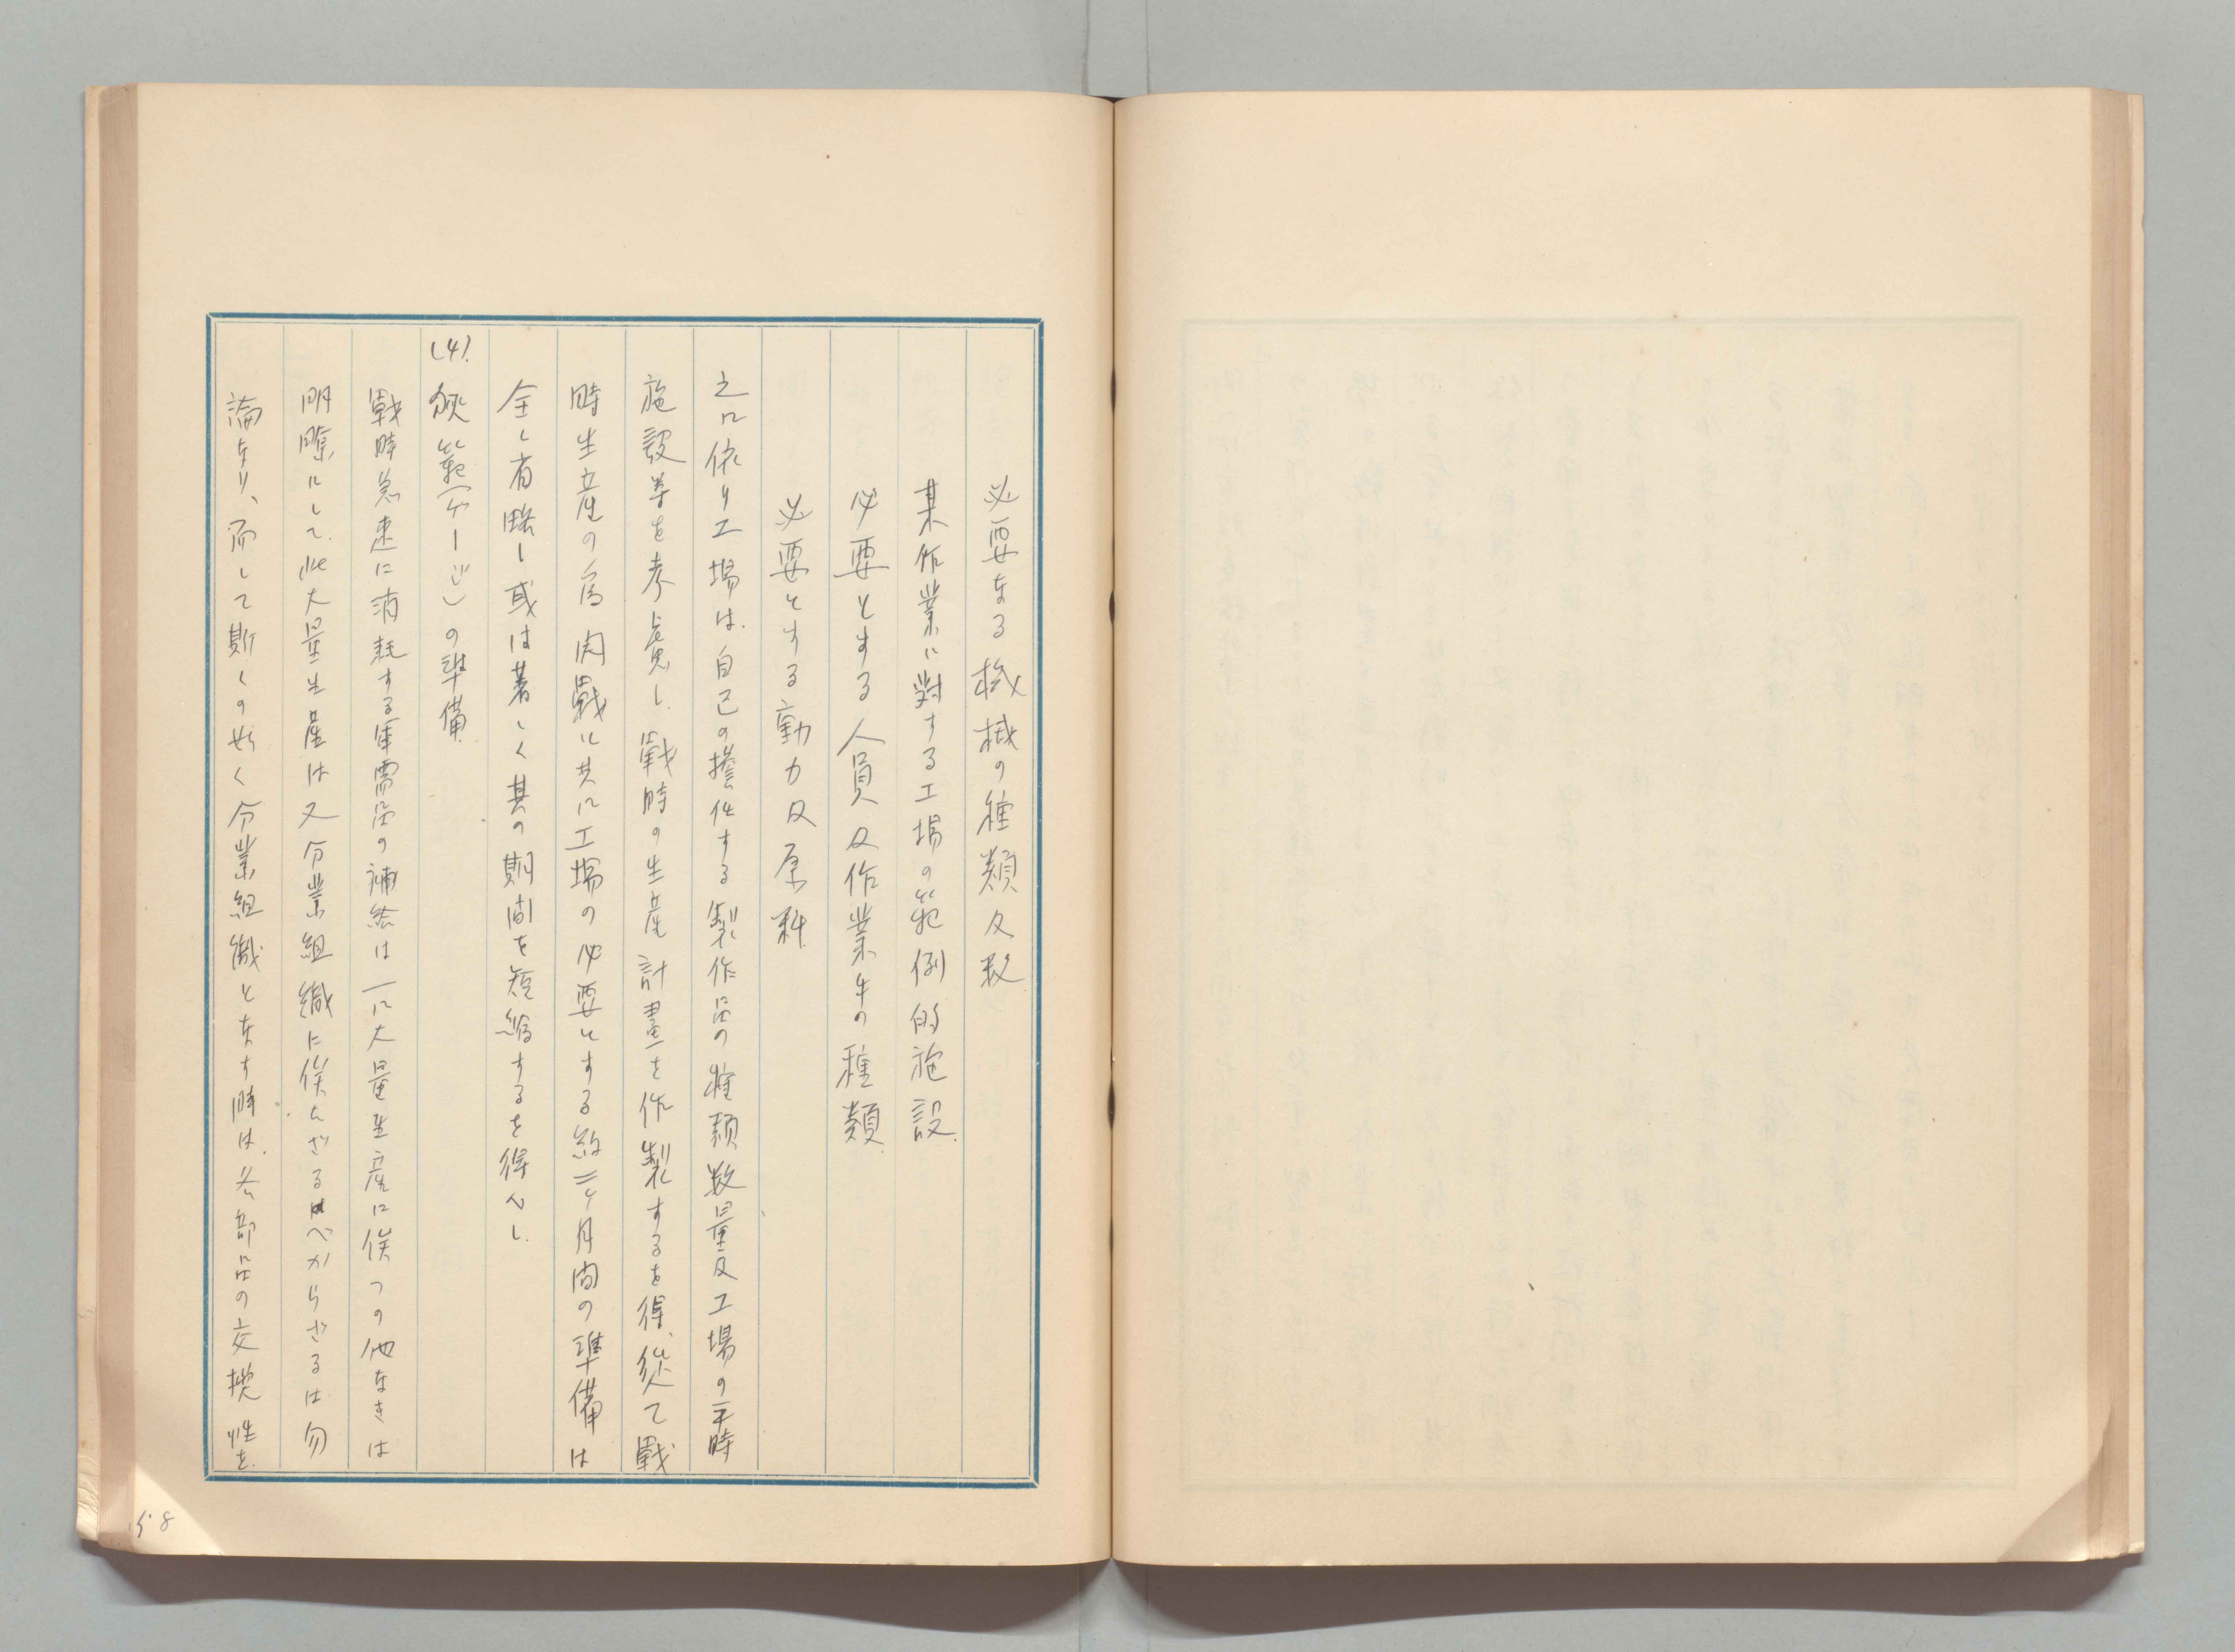 必要なる機械の種類及数
某作業に対する工場の範例的施設
必要とする人員及作業年の種類
必要とする動力及原料
之に依り工場は自己の擔任する製作品の種類数量及工場の平時
施設等を考慮し戰時の生産計畫を作製するを得、従て戰
時生産の為開戰と共に工場の必要とする約三ヶ月間の準備は
全く省略し或は著しく其の期間を短縮するを得べし
(4) 狹範(ゲージ)の準備
戰時急速に消耗する軍需品の補給は一に大量生産に俟つの他なきは
明瞭にして此大量生産は又分業組織に俟たざるべからざるは勿
論なり、而して斯くの如く分業組織となす時は各部品の交換性を
58